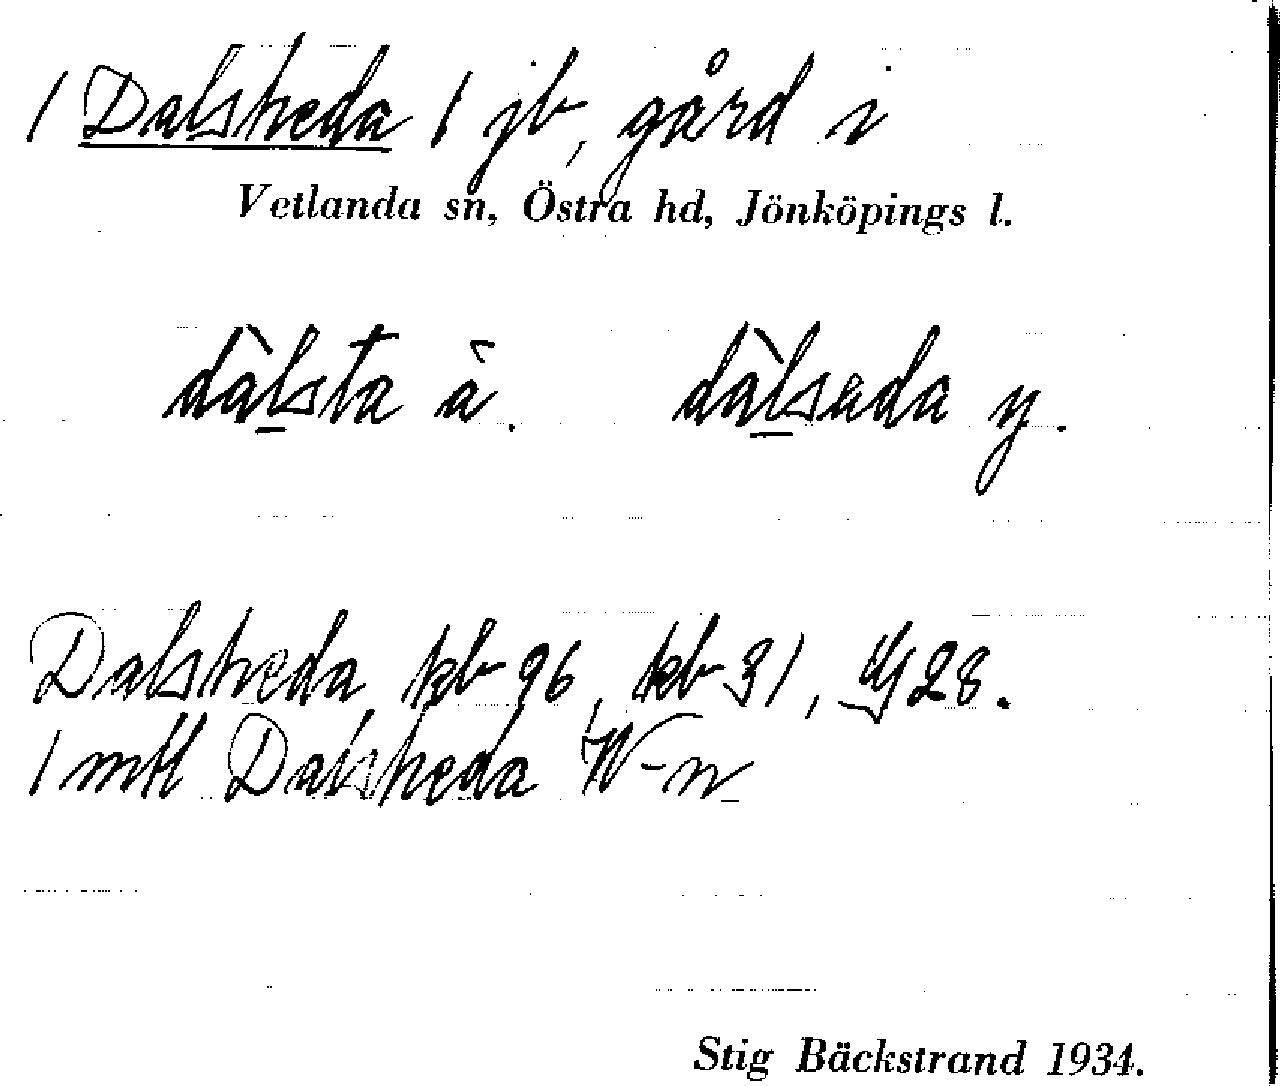 1 Dalsheda 1 jb, gård i
Vetlanda sn, Östra hd, Jönköpings l.
dàlsta ä. dàlsada y.
Dalsheda kb 96, kb 31, Yj 28.
1 mtl Dalsheda W-n
Stig Bäckstrand 1934.